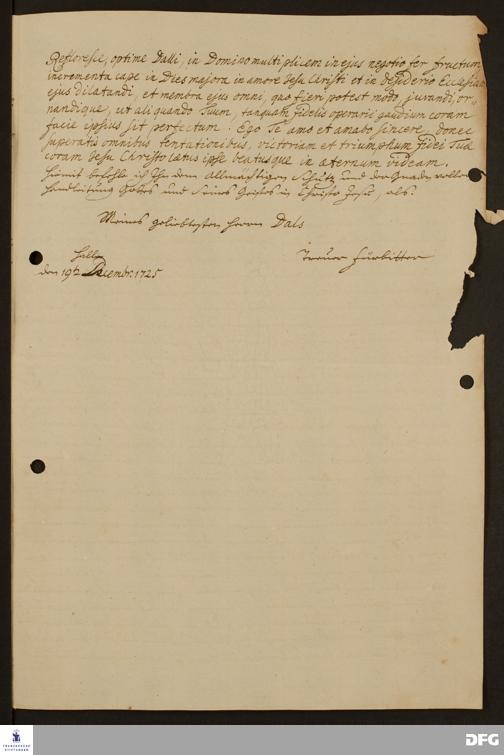 Refloresce, optime Dalli, in Domino multiplicem in ejus negotio fer fructum
incrementa cape in Dies majora in amore Jesu Christi et in desiderio Ecclesiam
ejus dilatandi, et membra ejus omni, quo fieri potest modo juvandi, or-
nandique, ut aliquando Tuum, tanquam fidelis operarii gaudium coram
facie ipsius sit perfectum. Ego Te amo et amabo sincere, donec
superatis omnibus tentationibus, victoriam et triumphum fidei Tuæ
coram Jesu Christo lætus ipse beatusque in æternum videam.
Hiemit befehle ich Ihn dem Allmächtigen Schutz und der Gnaden vollen
Handleitung Gottes und seines Geistes in Christo Jesu, als:
Meines geliebtesten Herrn Dals
Halle
den 19t Decembr. 1725
treuer Fürbitter
FRANCKESCHE
STIFTUNGEN
DFG